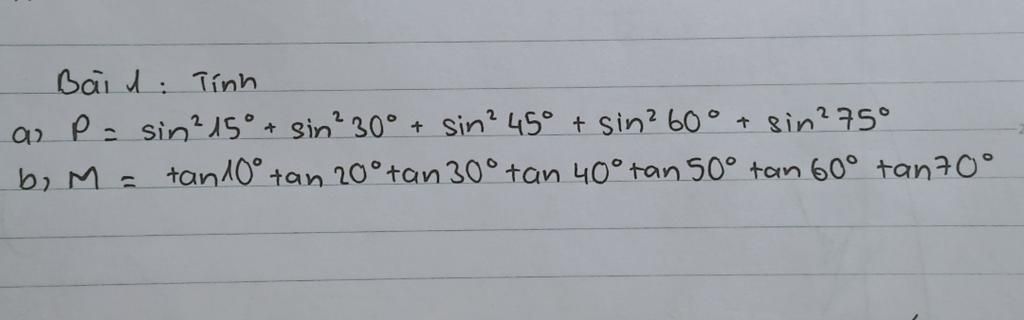 Bài 1 : Tính
a, P = sin² 15° + sin² 30° + sin² 45° + sin² 60° + sin² 75°
b, M = tan10° tan 20° tan 30° tan 40° tan 50° tan 60° tan 70°